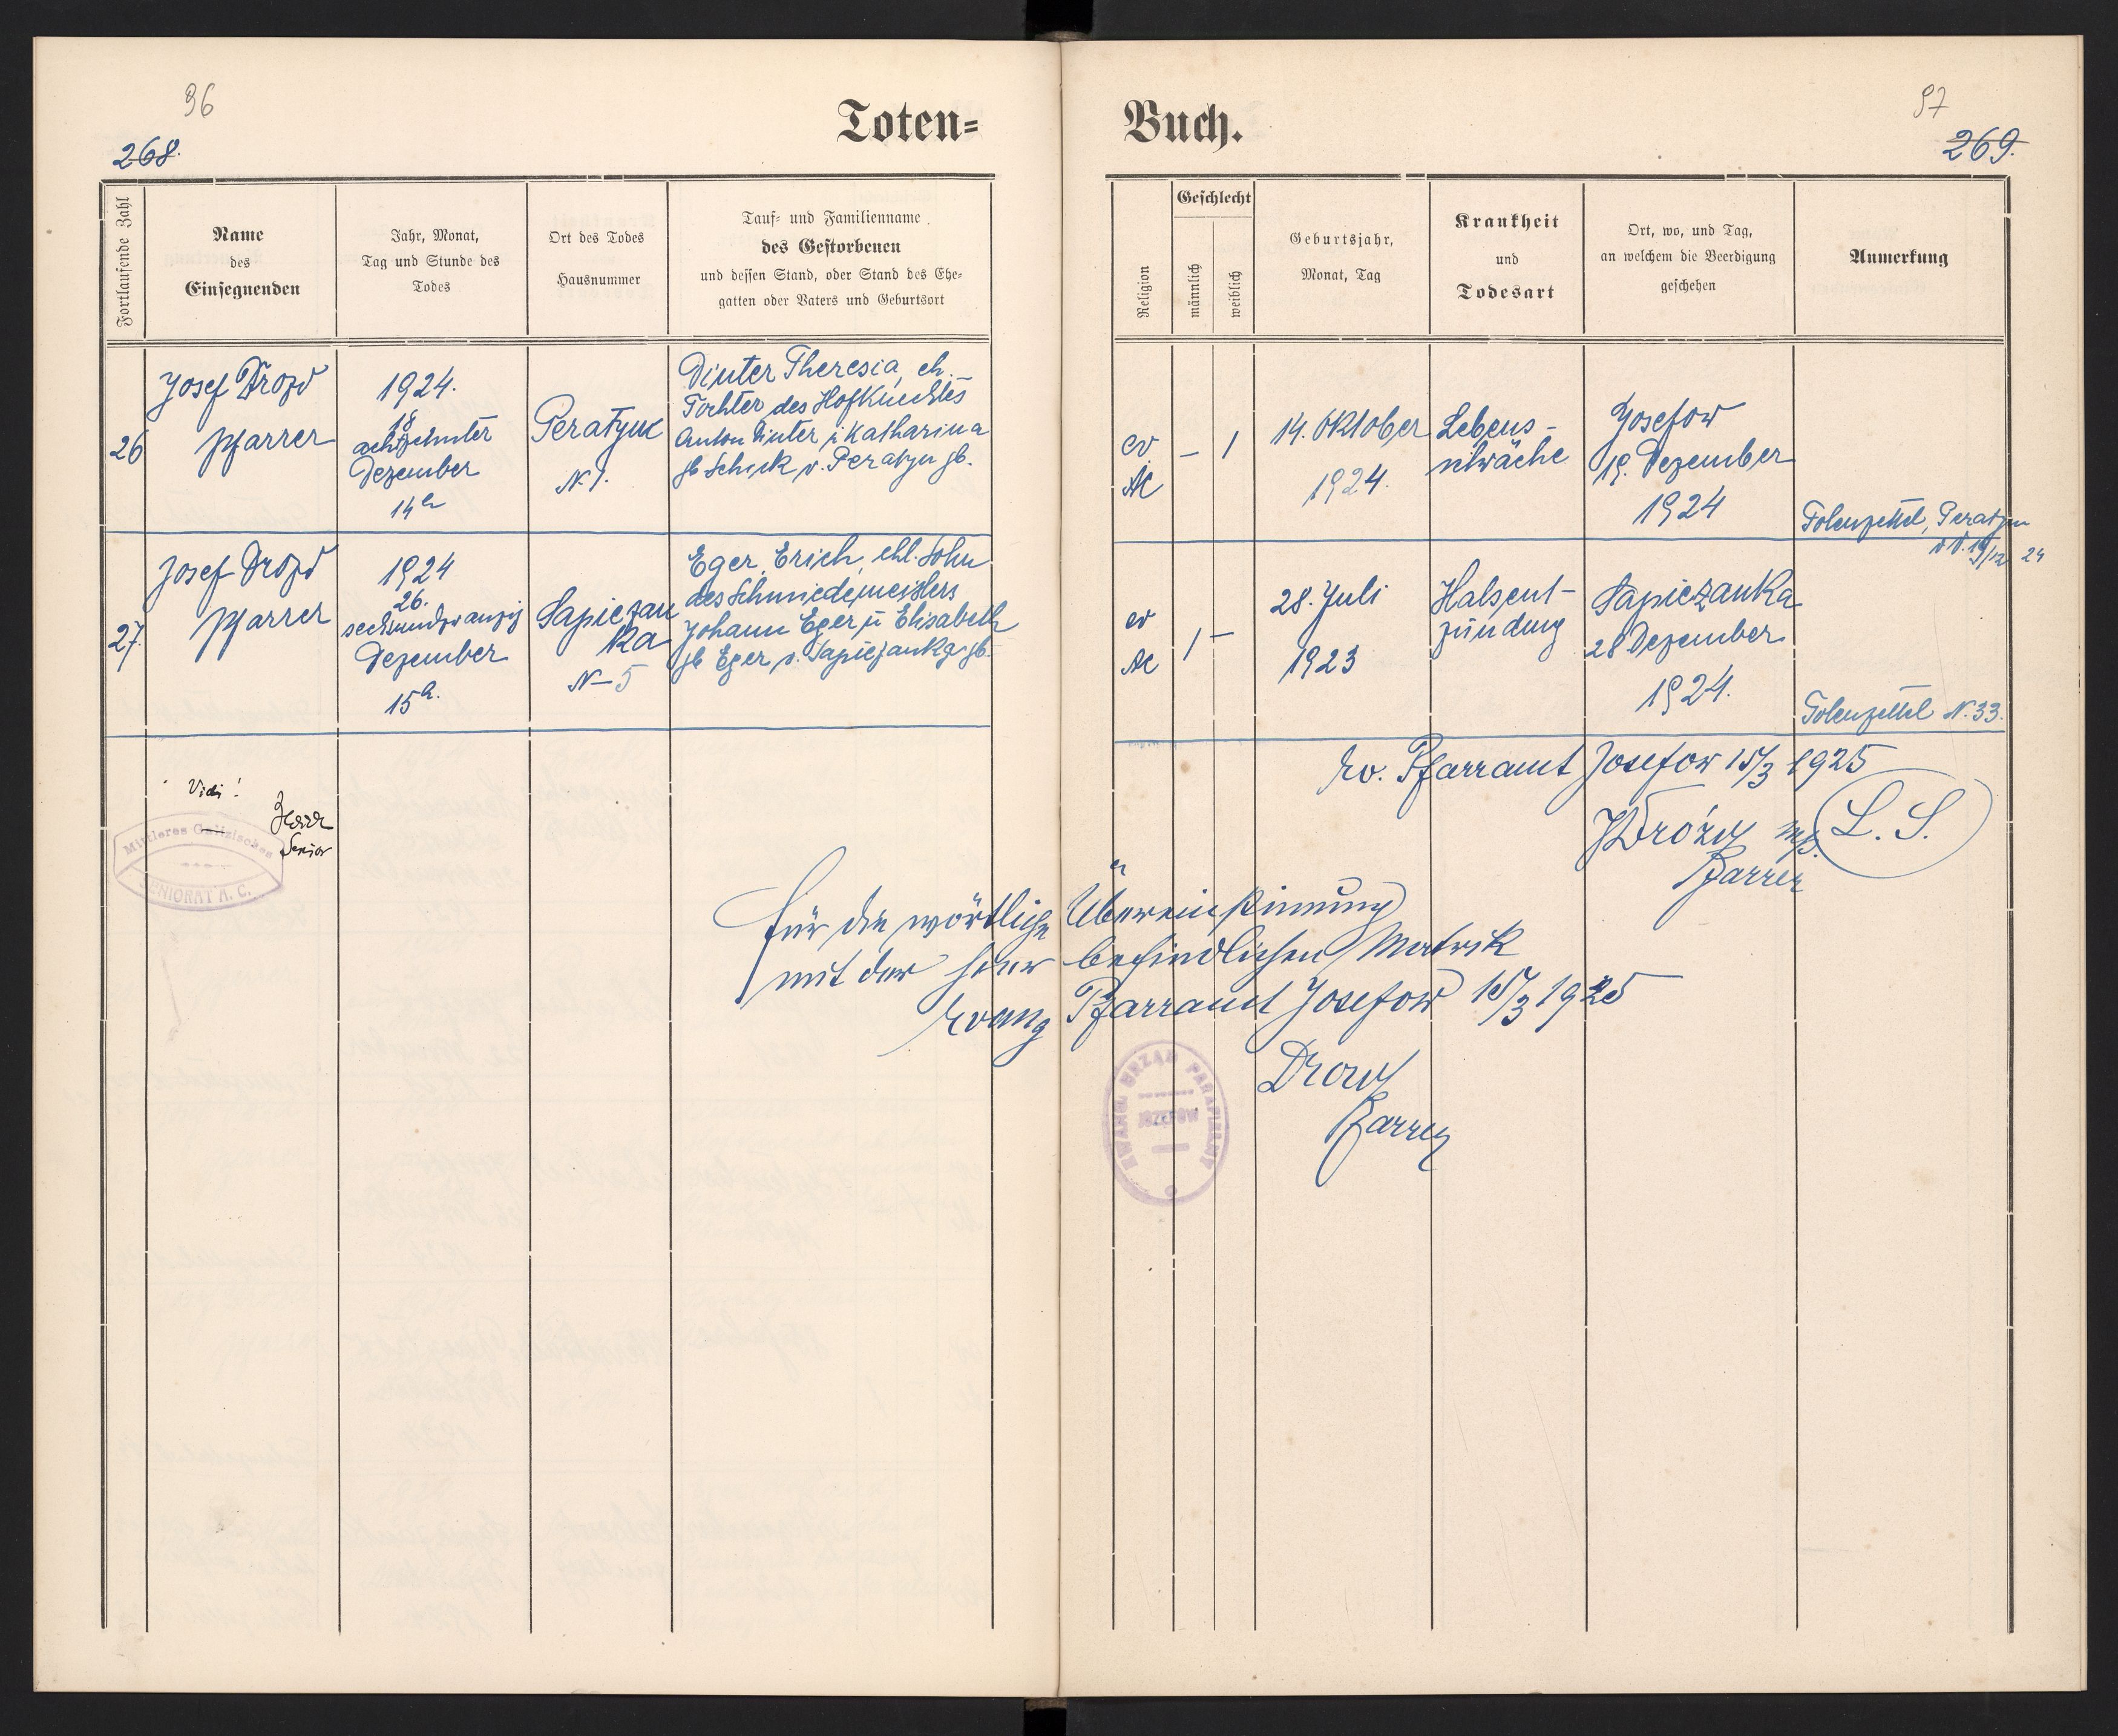 96
268.
Toten=
Fortlaufende Zahl
Name
des
Einsegnenden
Jahr, Monat,
Tag und Stunde des
Todes
Ort des Todes
Hausnummer
Tauf= und Familienname
des Gestorbenen
und dessen Stand, oder Stand des Ehe=
gatten oder Vaters und Geburtsort
26
Josef Drozd
Pfarrer
1924.
18
achtzehnter
Dezember
14h
Peratyn
N 1.
Dinter Theresia, eh.
Tochter des Hofknechtes
Anton Dinter u Katharina
gb Schick v. Peratyn gb.
27.
Josef Drozd
Pfarrer
1924
26.
sechsundzwanzig
Dezember
15h.
Sapiezan
ka
N 5
Eger Erich, ehl. Sohn
des Schmiedemeisters
Johann Eger u Elisabeth
gb Eger v. Sapiezanka gb.
Vidi!
Senior
Mittleres Galizisches
SENIORAT A. C.
97
269.
Buch.
Religion
Geschlecht
männlich
weiblich
Geburtsjahr,
Monat, Tag
Krankheit
und
Todesart
Ort, wo, und Tag,
an welchem die Beerdigung
geschehen
Anmerkung
ev
AC
– 1
14. Oktober
1924.
Lebens-
schwäche
Josefow
19. Dezember
1924
Totenzettel, Peratyn
v. 19/12 24
ev
AC
1 –
28. Juli
1923
Halsent-
zündung
Sapiezanka
28 Dezember
1924.
Totenzettel N. 33.
Ev. Pfarramt Josefow 15/3 1925
JDrozd mp.
Pfarrer
L. S.
Für die wörtliche Übereinstimmung
mit der hier befindlichen Matrik
Evang Pfarramt Josefow 15/3 1925
Drozd
Pfarrer
EWANG. URZĄD PARAFIALNY
JÓZEFÓW